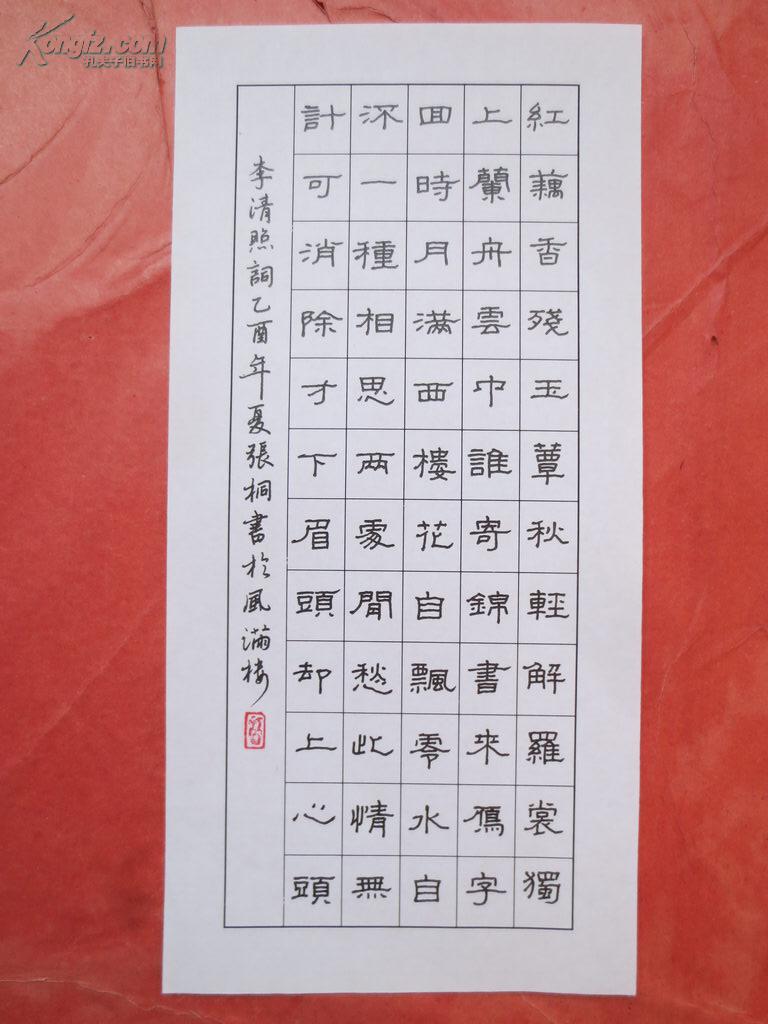 Kongfz.com
孔夫子旧书网
紅藕香殘玉蕈秋輕解羅裳獨
上蘭舟雲中誰寄錦書來鴈字
回時月滿西樓花自飄零水自
流一種相思两處閒愁此情無
計可消除才下眉頭却上心頭
李清照詞乙酉年夏張桐書於風滿樓